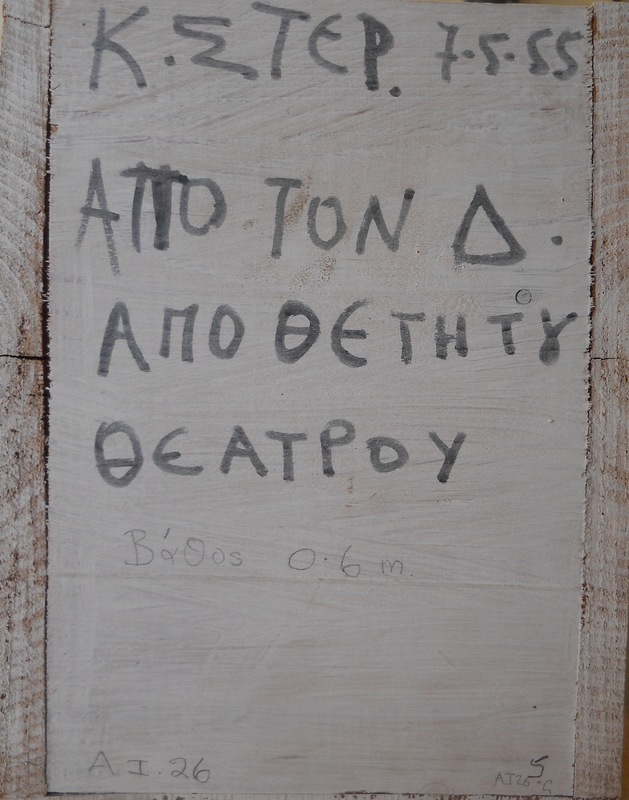 Κ. ΣΤΕΡ. 7.5.55
ΑΠΟ ΤΟΝ Δ.
ΑΠΟΘΕΤΗ ΤΥ
ΘΕΑΤΡΟΥ
Βάθος 0.6 m.
A.I.26